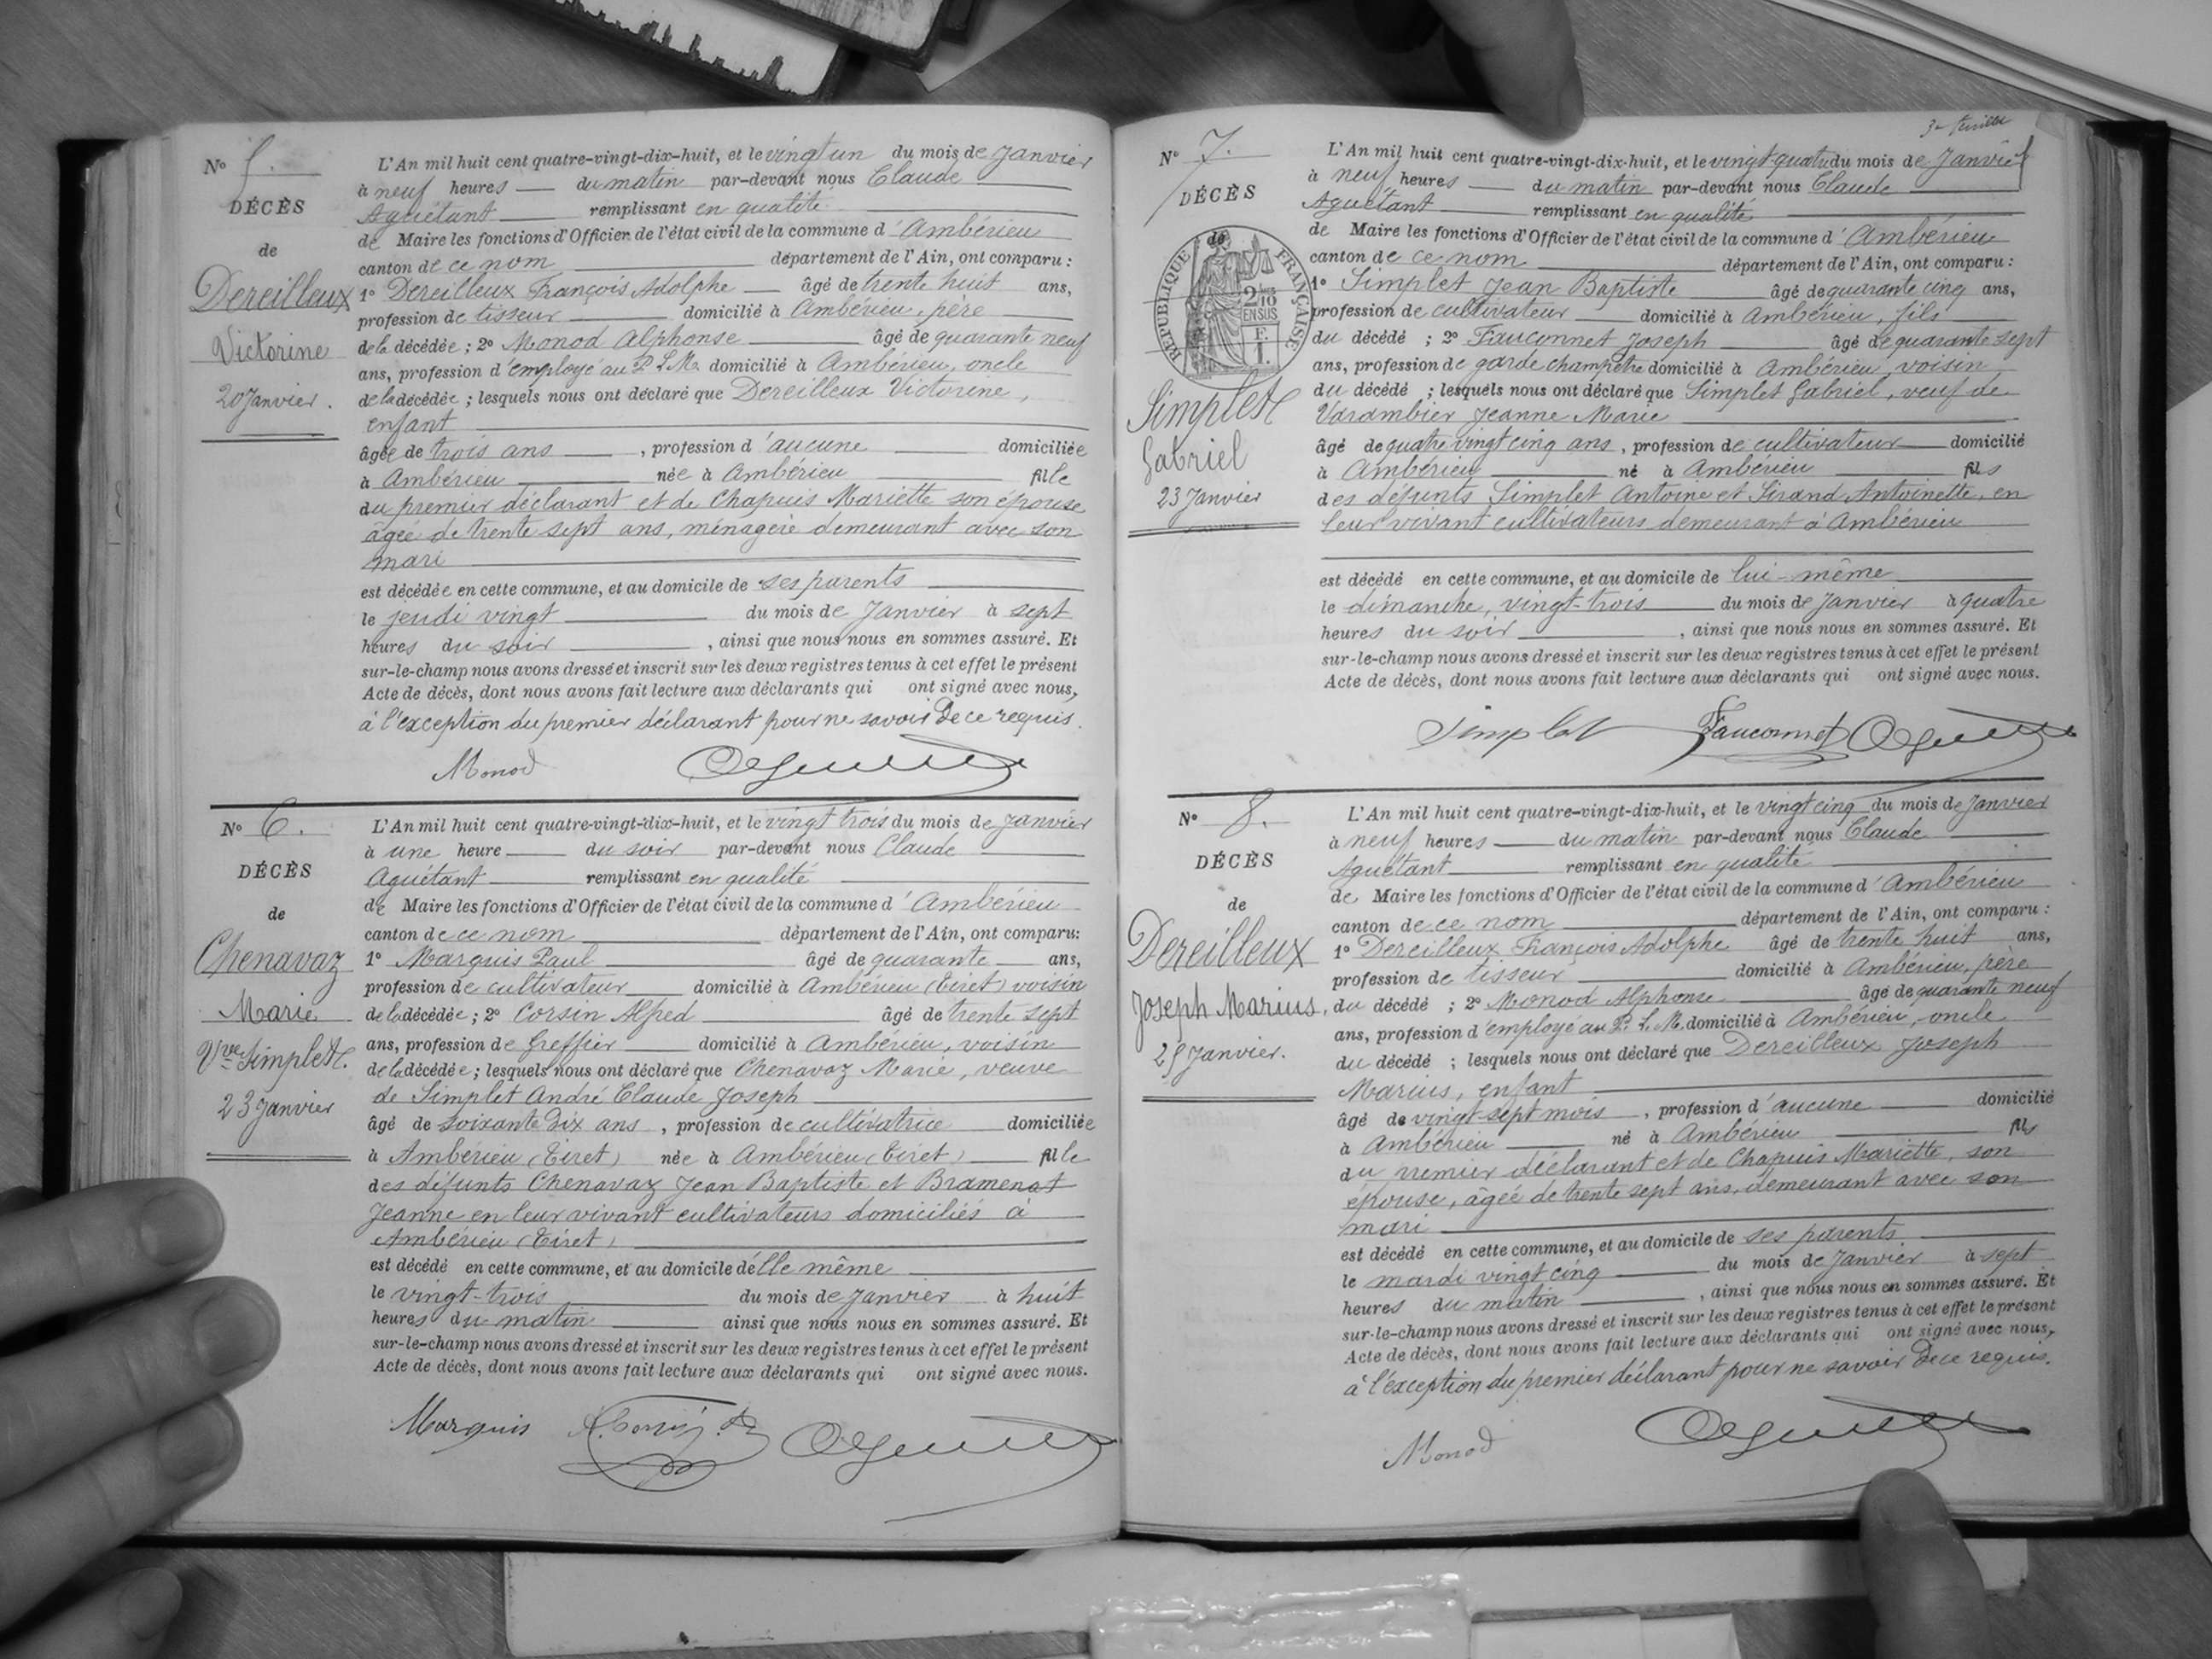 N° 5.
DÉCÈS
de
Dereilleux
Victorine
20 Janvier.
L'An mil huit cent quatre-vingt-dix-huit, et le vingt un du mois de Janvier
à neuf heures du matin par-devant nous Claude
Aguétant remplissant en qualité
de Maire les fonctions d'Officier de l'état civil de la commune d'Ambérieu
canton de ce nom département de l'Ain, ont comparu :
1° Dereilleux François Adolphe âgé de trente huit ans,
profession de tisseur domicilié à Ambérieu, père
de la décédée ; 2° Monod Alphonse âgé de quarante neuf
ans, profession d'employé au P. L. M. domicilié à Ambérieu, oncle
de la décédée ; lesquels nous ont déclaré que Dereilleux Victorine,
enfant
âgée de trois ans, profession d'aucune domiciliée
à Ambérieu née à Ambérieu fille
du premier déclarant et de Chapuis Mariette son épouse
âgée de trente sept ans, ménagère demeurant avec son
mari
est décédée en cette commune, et au domicile de ses parents
le jeudi vingt du mois de Janvier à sept
heures du soir, ainsi que nous nous en sommes assuré. Et
sur-le-champ nous avons dressé et inscrit sur les deux registres tenus à cet effet le présent
Acte de décès, dont nous avons fait lecture aux déclarants qui ont signé avec nous,
à l'exception du premier déclarant pour ne savoir de ce requis.
Monod
N° 6.
DÉCÈS
de
Chenavaz
Marie
Vve Simplet.
23 Janvier
L'An mil huit cent quatre-vingt-dix-huit, et le vingt trois du mois de Janvier
à une heure du soir par-devant nous Claude
Aguétant remplissant en qualité
de Maire les fonctions d'Officier de l'état civil de la commune d'Ambérieu
canton de ce nom département de l'Ain, ont comparu:
1° Marquis Paul âgé de quarante ans,
profession de cultivateur domicilié à Ambérieu (Tiret) voisin
de la décédée ; 2° Corsin Alfred âgé de trente sept
ans, profession de Greffier domicilié à Ambérieu, voisin
de la décédée ; lesquels nous ont déclaré que Chenavaz Marie, veuve
de Simplet André Claude Joseph
âgé de soixante dix ans, profession de cultivatrice domiciliée
à Ambérieu (Tiret) née à Ambérieu (Tiret) fille
des défunts Chenavaz Jean Baptiste et Bramenat
Jeanne en leur vivant cultivateurs domiciliés à
Ambérieu (Tiret)
est décédé en cette commune, et au domicile d'elle même
le vingt-trois du mois de Janvier à huit
heures du matin ainsi que nous nous en sommes assuré. Et
sur-le-champ nous avons dressé et inscrit sur les deux registres tenus à cet effet le présent
Acte de décès, dont nous avons fait lecture aux déclarants qui ont signé avec nous.
Marquis
3e feuillet
N° 7.
DÉCÈS
de
RÉPUBLIQUE FRANÇAISE
2/10
EN SUS
F.
1.
Simplet
Gabriel
23 Janvier
L'An mil huit cent quatre-vingt-dix-huit, et le vingt-quatre du mois de Janvier
à neuf heures du matin par-devant nous Claude
Aguétant remplissant en qualité
de Maire les fonctions d'Officier de l'état civil de la commune d'Ambérieu
canton de ce nom département de l'Ain, ont comparu :
1° Simplet Jean Baptiste âgé de quarante cinq ans,
profession de cultivateur domicilié à Ambérieu, fils
du décédé ; 2° Fauconnet Joseph âgé de quarante sept
ans, profession de garde champêtre domicilié à Ambérieu, voisin
du décédé ; lesquels nous ont déclaré que Simplet Gabriel, veuf de
Varambier Jeanne Marie
âgé de quatre vingt cinq ans, profession de cultivateur domicilié
à Ambérieu né à Ambérieu fils
des défunts Simplet Antoine et Sirand Antoinette, en
leur vivant cultivateurs demeurant à Ambérieu
est décédé en cette commune, et au domicile de lui-même
le dimanche, vingt-trois du mois de Janvier à quatre
heures du soir, ainsi que nous nous en sommes assuré. Et
sur-le-champ nous avons dressé et inscrit sur les deux registres tenus à cet effet le présent
Acte de décès, dont nous avons fait lecture aux déclarants qui ont signé avec nous.
Simplet Fauconnet
N° 8.
DÉCÈS
de
Dereilleux
Joseph Marius,
25 Janvier.
L'An mil huit cent quatre-vingt-dix-huit, et le vingt cinq du mois de Janvier
à neuf heures du matin par-devant nous Claude
Aguétant remplissant en qualité
de Maire les fonctions d'Officier de l'état civil de la commune d'Ambérieu
canton de ce nom département de l'Ain, ont comparu :
1° Dereilleux François Adolphe âgé de trente huit ans,
profession de tisseur domicilié à Ambérieu, père
du décédé ; 2° Monod Alphonse âgé de quarante neuf
ans, profession d'employé au P. L. M. domicilié à Ambérieu, oncle
du décédé ; lesquels nous ont déclaré que Dereilleux Joseph
Marius, enfant
âgé de vingt-sept mois, profession d'aucune domicilié
à Ambérieu né à Ambérieu fils
du premier déclarant et de Chapuis Mariette, son
épouse, âgée de trente sept ans, demeurant avec son
mari
est décédé en cette commune, et au domicile de ses parents
le mardi vingt cinq du mois de Janvier à sept
heures du matin, ainsi que nous nous en sommes assuré. Et
sur-le-champ nous avons dressé et inscrit sur les deux registres tenus à cet effet le présent
Acte de décès, dont nous avons fait lecture aux déclarants qui ont signé avec nous,
à l'exception du premier déclarant pour ne savoir de ce requis.
Monod